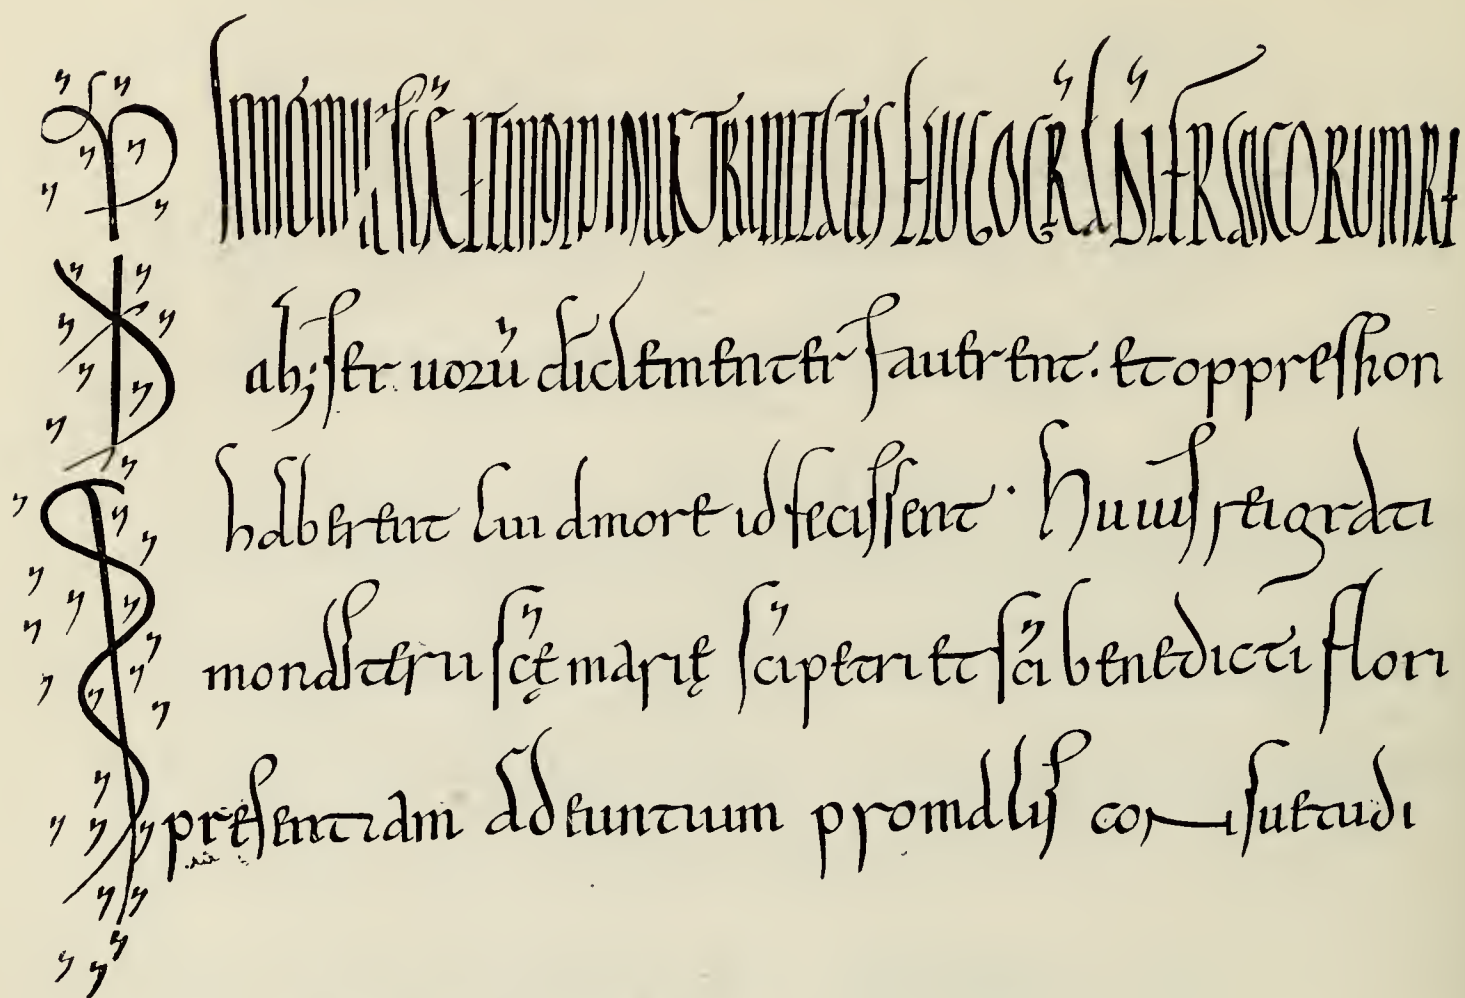 In nomine sce et individuae trinitatis hugo gra di francorum re
ab; servorū di clementer faverent. et oppression
haberent Cui amore id fecissent. Huius rei grati
monasterii scę marię sci petri et sci benedicti flori
presentiam adeuntium pro malis consuetudi